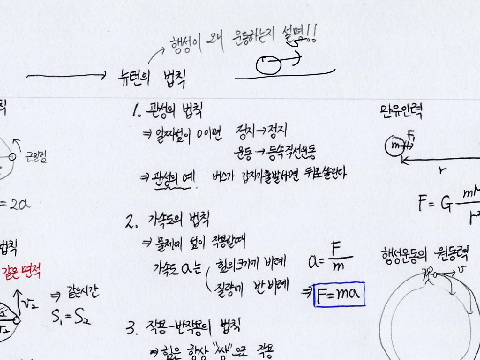 행성이 왜 운동하는지 설명!!
뉴턴의 법칙
1. 관성의 법칙
⇒ 알짜힘이 0이면 정지→정지
운동→등속직선운동
⇒ 관성의 예. 버스가 갑자기 출발하면 뒤로 쏠린다
2. 가속도의 법칙
⇒ 물체에 힘이 작용할때
가속도 a는 힘의 크기에 비례
질량에 반비례
a = F/m
⇒ F=ma
3. 작용-반작용의 법칙
⇒ 힘은 항상 "쌍"으로 작용
만유인력
m
F
r
F = G
행성운동의 원동력
v
근일점
= 2a
법칙
같은 면적
v₂
⇒ 같은시간
S₁ = S₂